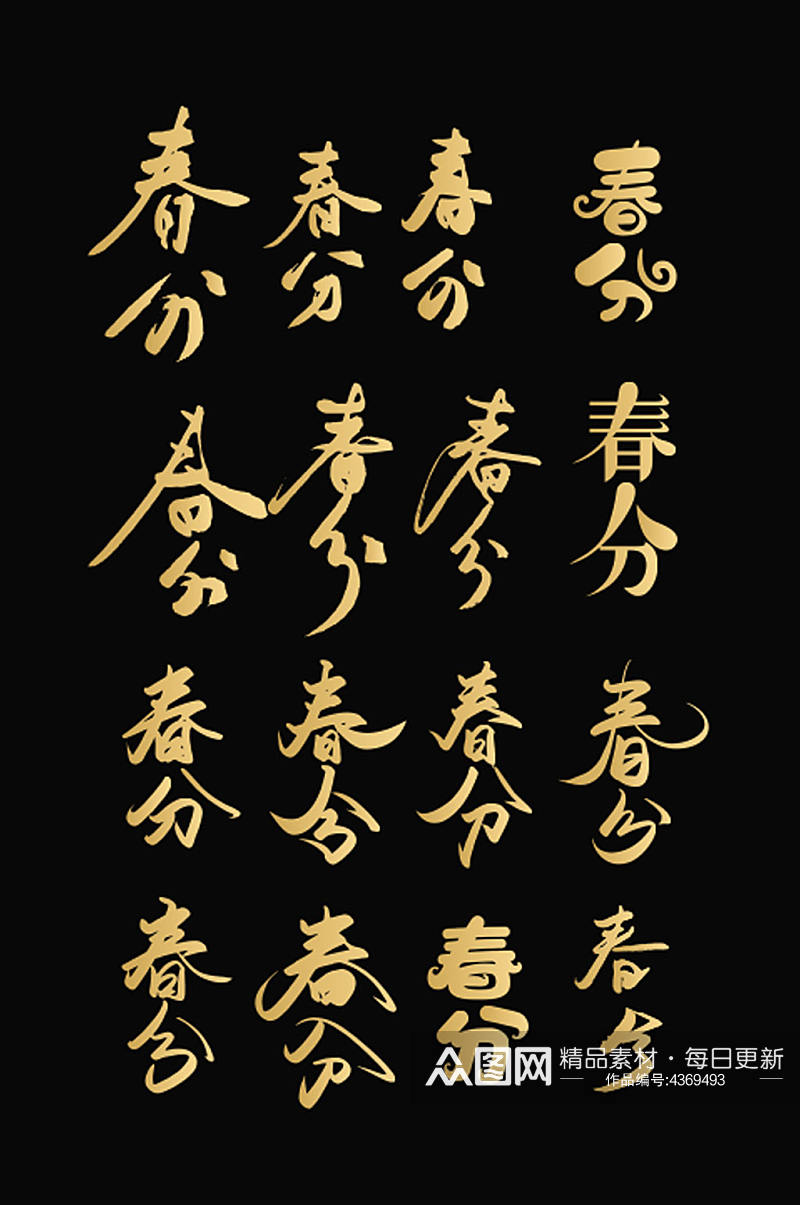 春分 春分 春分 春分
春分 春分 春分 春分
春分 春分 春分 春分
春分 春分 春分 春分
众图网 精品素材·每日更新
作品编号:4369493